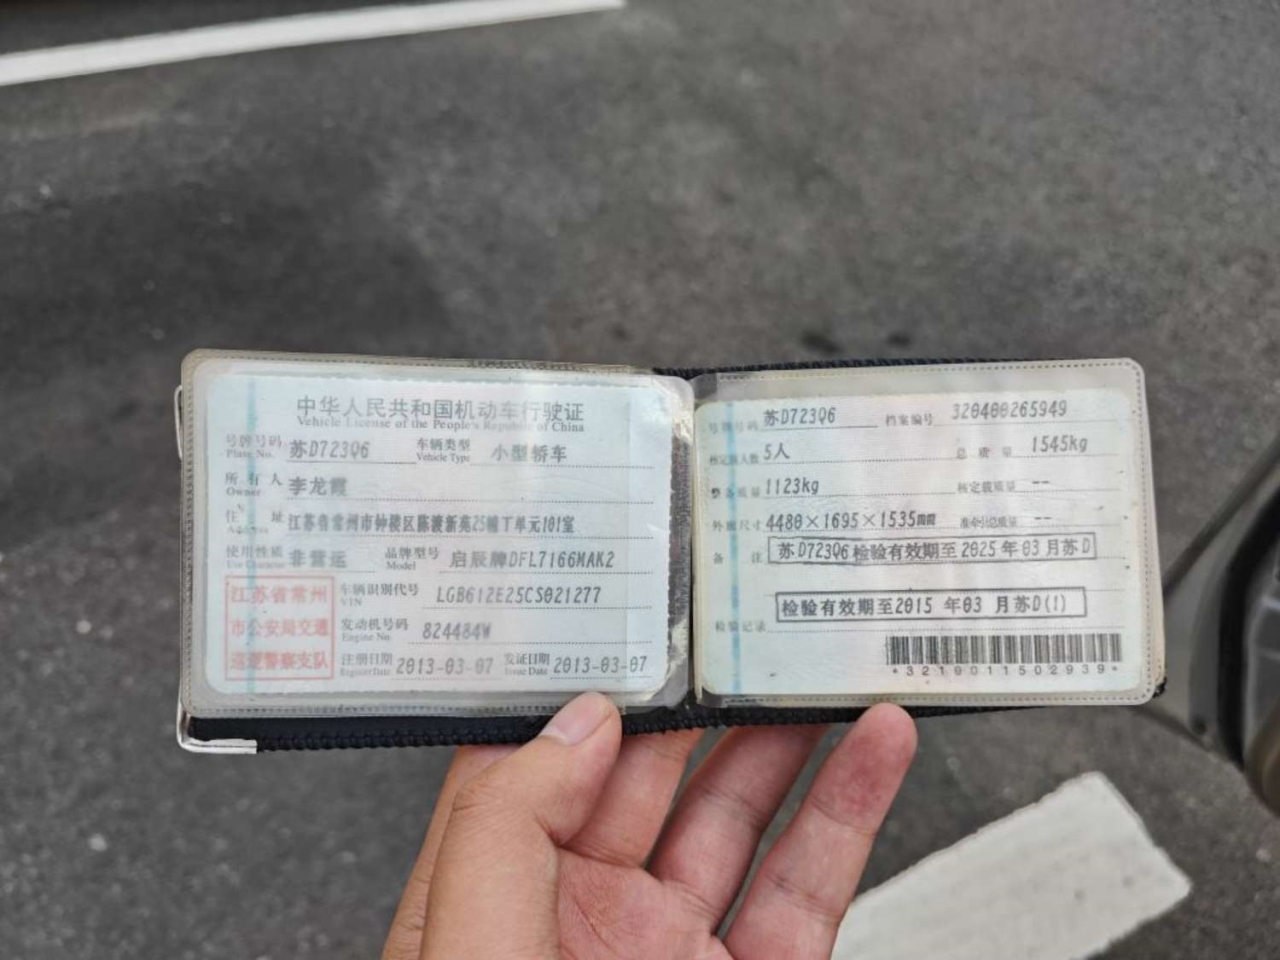 中华人民共和国机动车行驶证
Vehicle License of the People's Republic of China
号牌号码 苏D723Q6 车辆类型 小型轿车
Plate No. Vehicle Type
所有人 李龙霞
Owner
住 址 江苏省常州市钟楼区陈渡新苑25幢丁单元101室
Address
使用性质 非营运 品牌型号 启辰牌DFL7166MAK2
Use Character Model
江苏省常州
市公安局交通
巡逻警察支队
车辆识别代号 LGB612E25CS021277
VIN
发动机号码 824484W
Engine No.
注册日期 2013-03-07 发证日期 2013-03-07
Register Date Issue Date
号牌号码 苏D723Q6 档案编号 320400265949
核定载人数 5人 总质量 1545kg
整备质量 1123kg 核定载质量 --
外廓尺寸 4480×1695×1535mm 准牵引总质量 --
备 注 苏D723Q6检验有效期至2025年03月苏D
检验有效期至2015 年03 月苏D(1)
检验记录
*3219011502939*